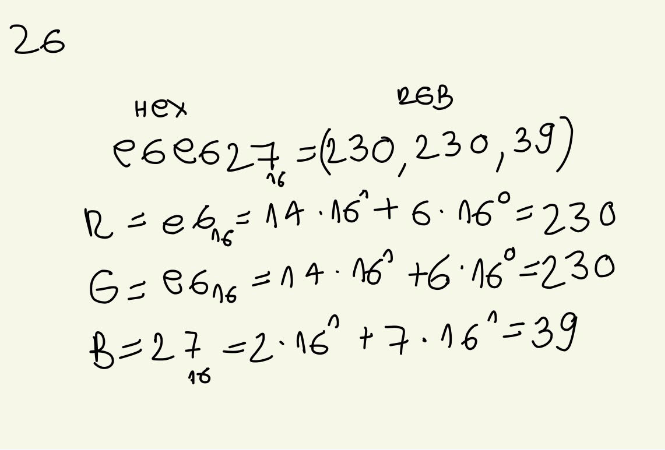 26
Hex RGB
e6e627₁₆ = (230, 230, 39)
R = e6₁₆ = 14 · 16¹ + 6 · 16⁰ = 230
G = e6₁₆ = 14 · 16¹ + 6 · 16⁰ = 230
B = 27₁₆ = 2 · 16¹ + 7 · 16¹ = 39